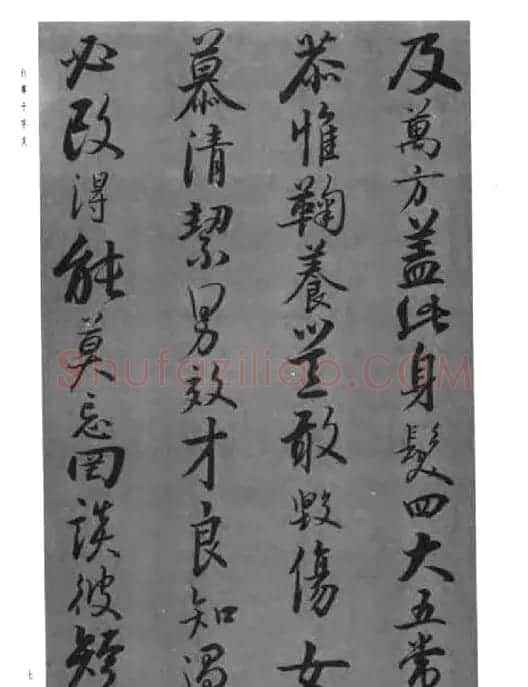 及萬方蓋此身髮四大五常
恭惟鞠養豈敢毀傷女
慕清絜男效才良知過
必改得能莫忘罔談彼短
Shufaziliao.COM
七